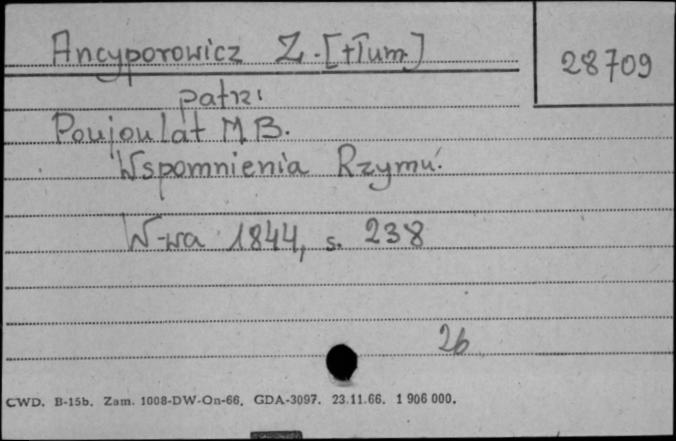 Ancyporowicz Z. [tłum]
28709
patrz:
Poujoulat M B.
Wspomnienia Rzymu.
W-wa 1844, s. 238
2b
CWD. B-15b. Zam. 1008-DW-On-66. GDA-3097. 23.11.66. 1 906 000.